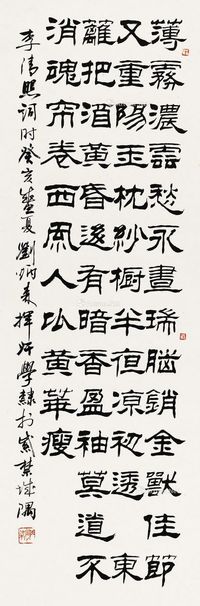 薄霧濃雲愁永晝瑞腦銷金獸佳節
又重陽玉枕紗櫥半夜涼初透東
籬把酒黃昏後有暗香盈袖莫道不
消魂帘卷西風人比黃華瘦
李清照詞時癸亥盛夏劉炳森揮汗學隸於紫禁城隅